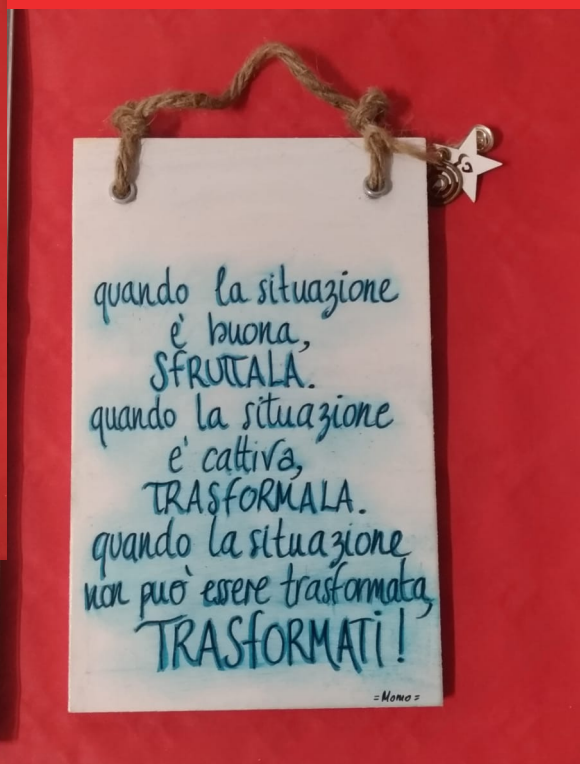 quando la situazione
è buona,
SfRUTTALA.
quando la situazione
e' cattiva,
TRASfORMALA.
quando la situazione
non può essere trasformata,
TRASfORMATi!
=Momo=